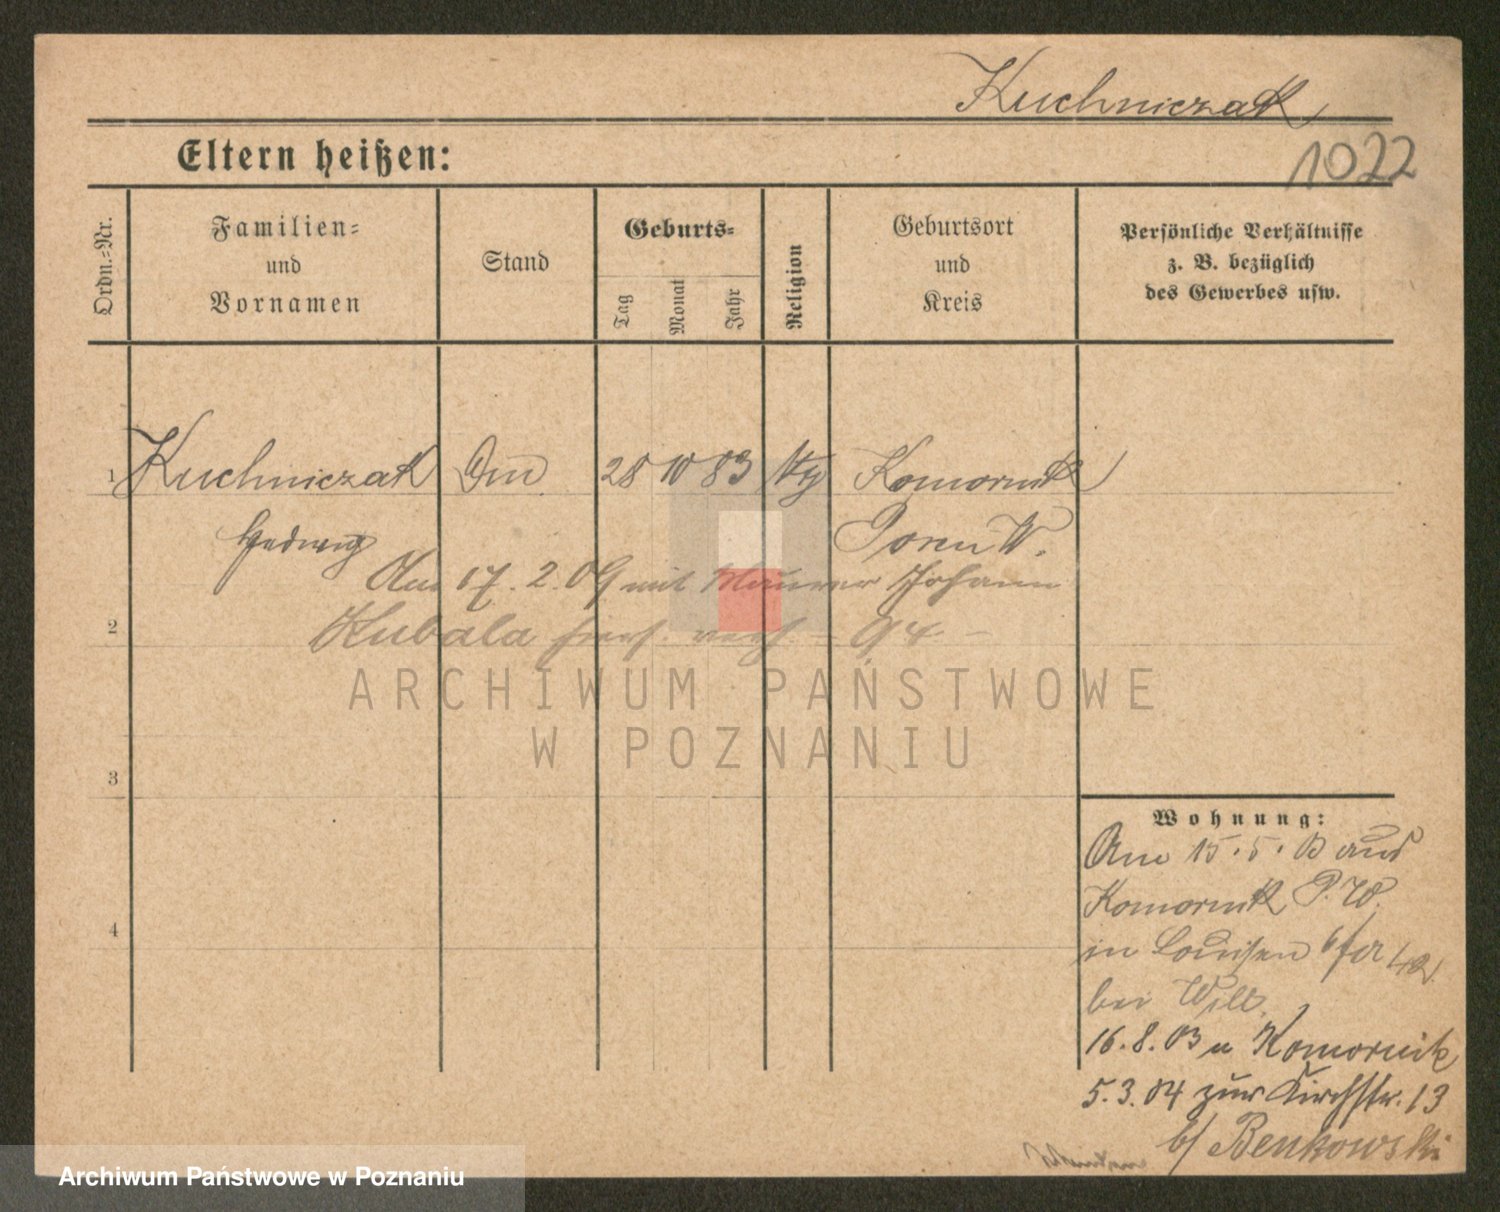 Kuchniczak
1022
Eltern heißen:
Ordn.=Nr.
Familien=
und
Vornamen
Stand
Geburts=
Tag
Monat
Jahr
Religion
Geburtsort
und
Kreis
Persönliche Verhältnisse
z. B. bezüglich
des Gewerbes usw.
1 Kuchniczak 28 10 83 Komornik
Hedwig Posen W.
Am 17. 2. 09 mit Maurer Johann
2 Kubala 94
ARCHIWUM PAŃSTWOWE
W POZNANIU
3
4
Wohnung:
Am 15. 5. 03 aus
Komornik P. W.
in Louisen
bei
16. 8. 03 n Komornik
5. 3. 04 zur Kirchstr. 13
b/ Benkowski
Archiwum Państwowe w Poznaniu